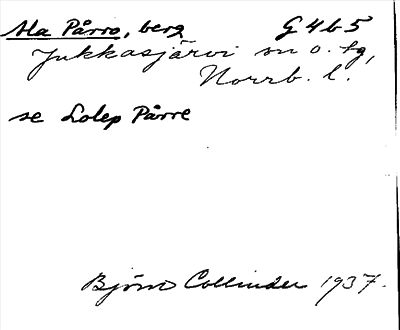 Ala Pårro, berg G 4 b 5
Jukkasjärvi sn o. tg,
Norrb. l.
se Lolep Pårre
Björn Collinder 1937.